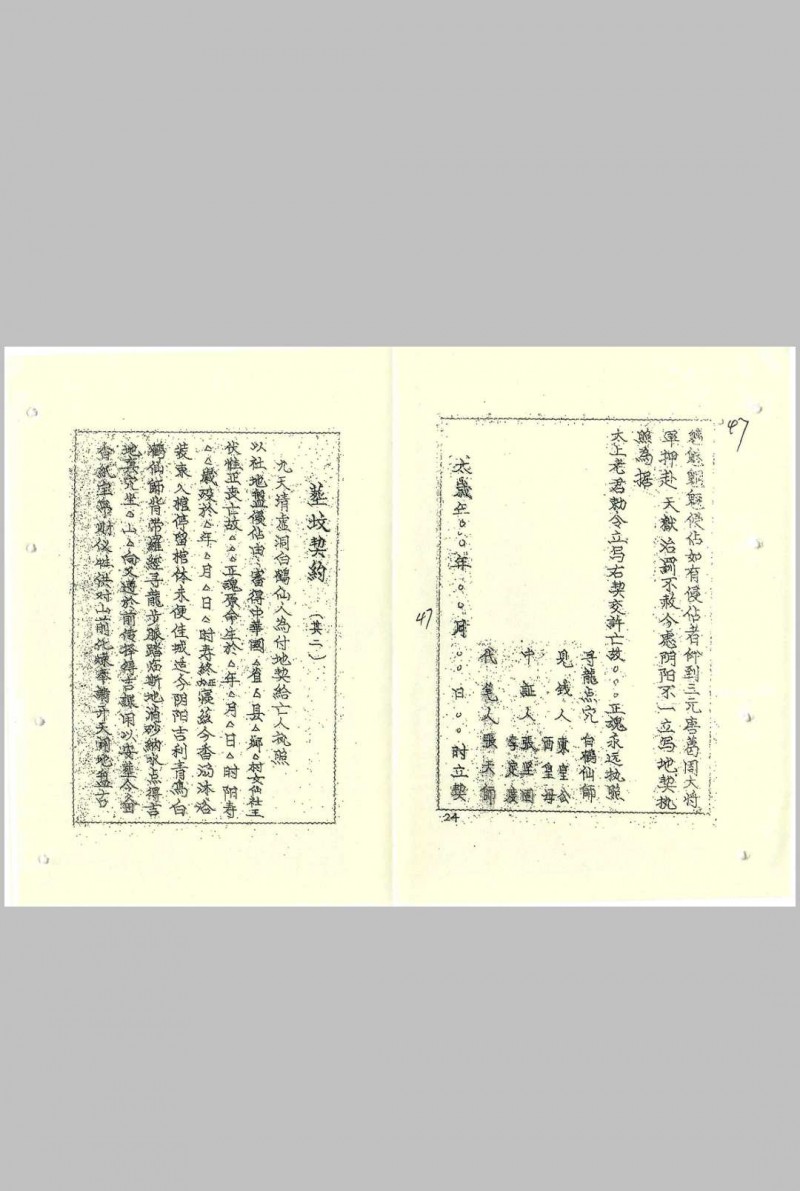 47
侵佔如有侵佔者仰到三元唐葛周大将
軍押赴 天獄治罰不赦今慮阴阳不一立写地契执
照為据
太上老君勅令立写右契交許亡故。。。正魂永远执照
寻龍点穴 白鶴仙師
見錢人 東皇公 西皇母
中証人 張坚固 李定度
代笔人張天師
太歲 。。年。。月。。日。。时立契
24
47
塟坟契約 (其二)
九天靖虚洞白鶴仙人為付地契給亡人执照
以社地盟侵佔由 審得中華國△省△县△鄉△村女仙社王
伏惟正丧亡故△△△正魂原命生於△年△月△日△时阳寿
△△歲殁於△年△月△日△时寿終 寝兹今香汤沐浴
装束入棺停留棺体未便住城迄今阴阳吉利青鳥白
鶴仙師背带羅經寻龍步脈踏临斯地消砂納水点得吉
地真穴坐△山△向又遵於前俵择得吉課用以安塟今备
香紙宝帛財仪牲供对山前化煉奉謝开天闢地盘古